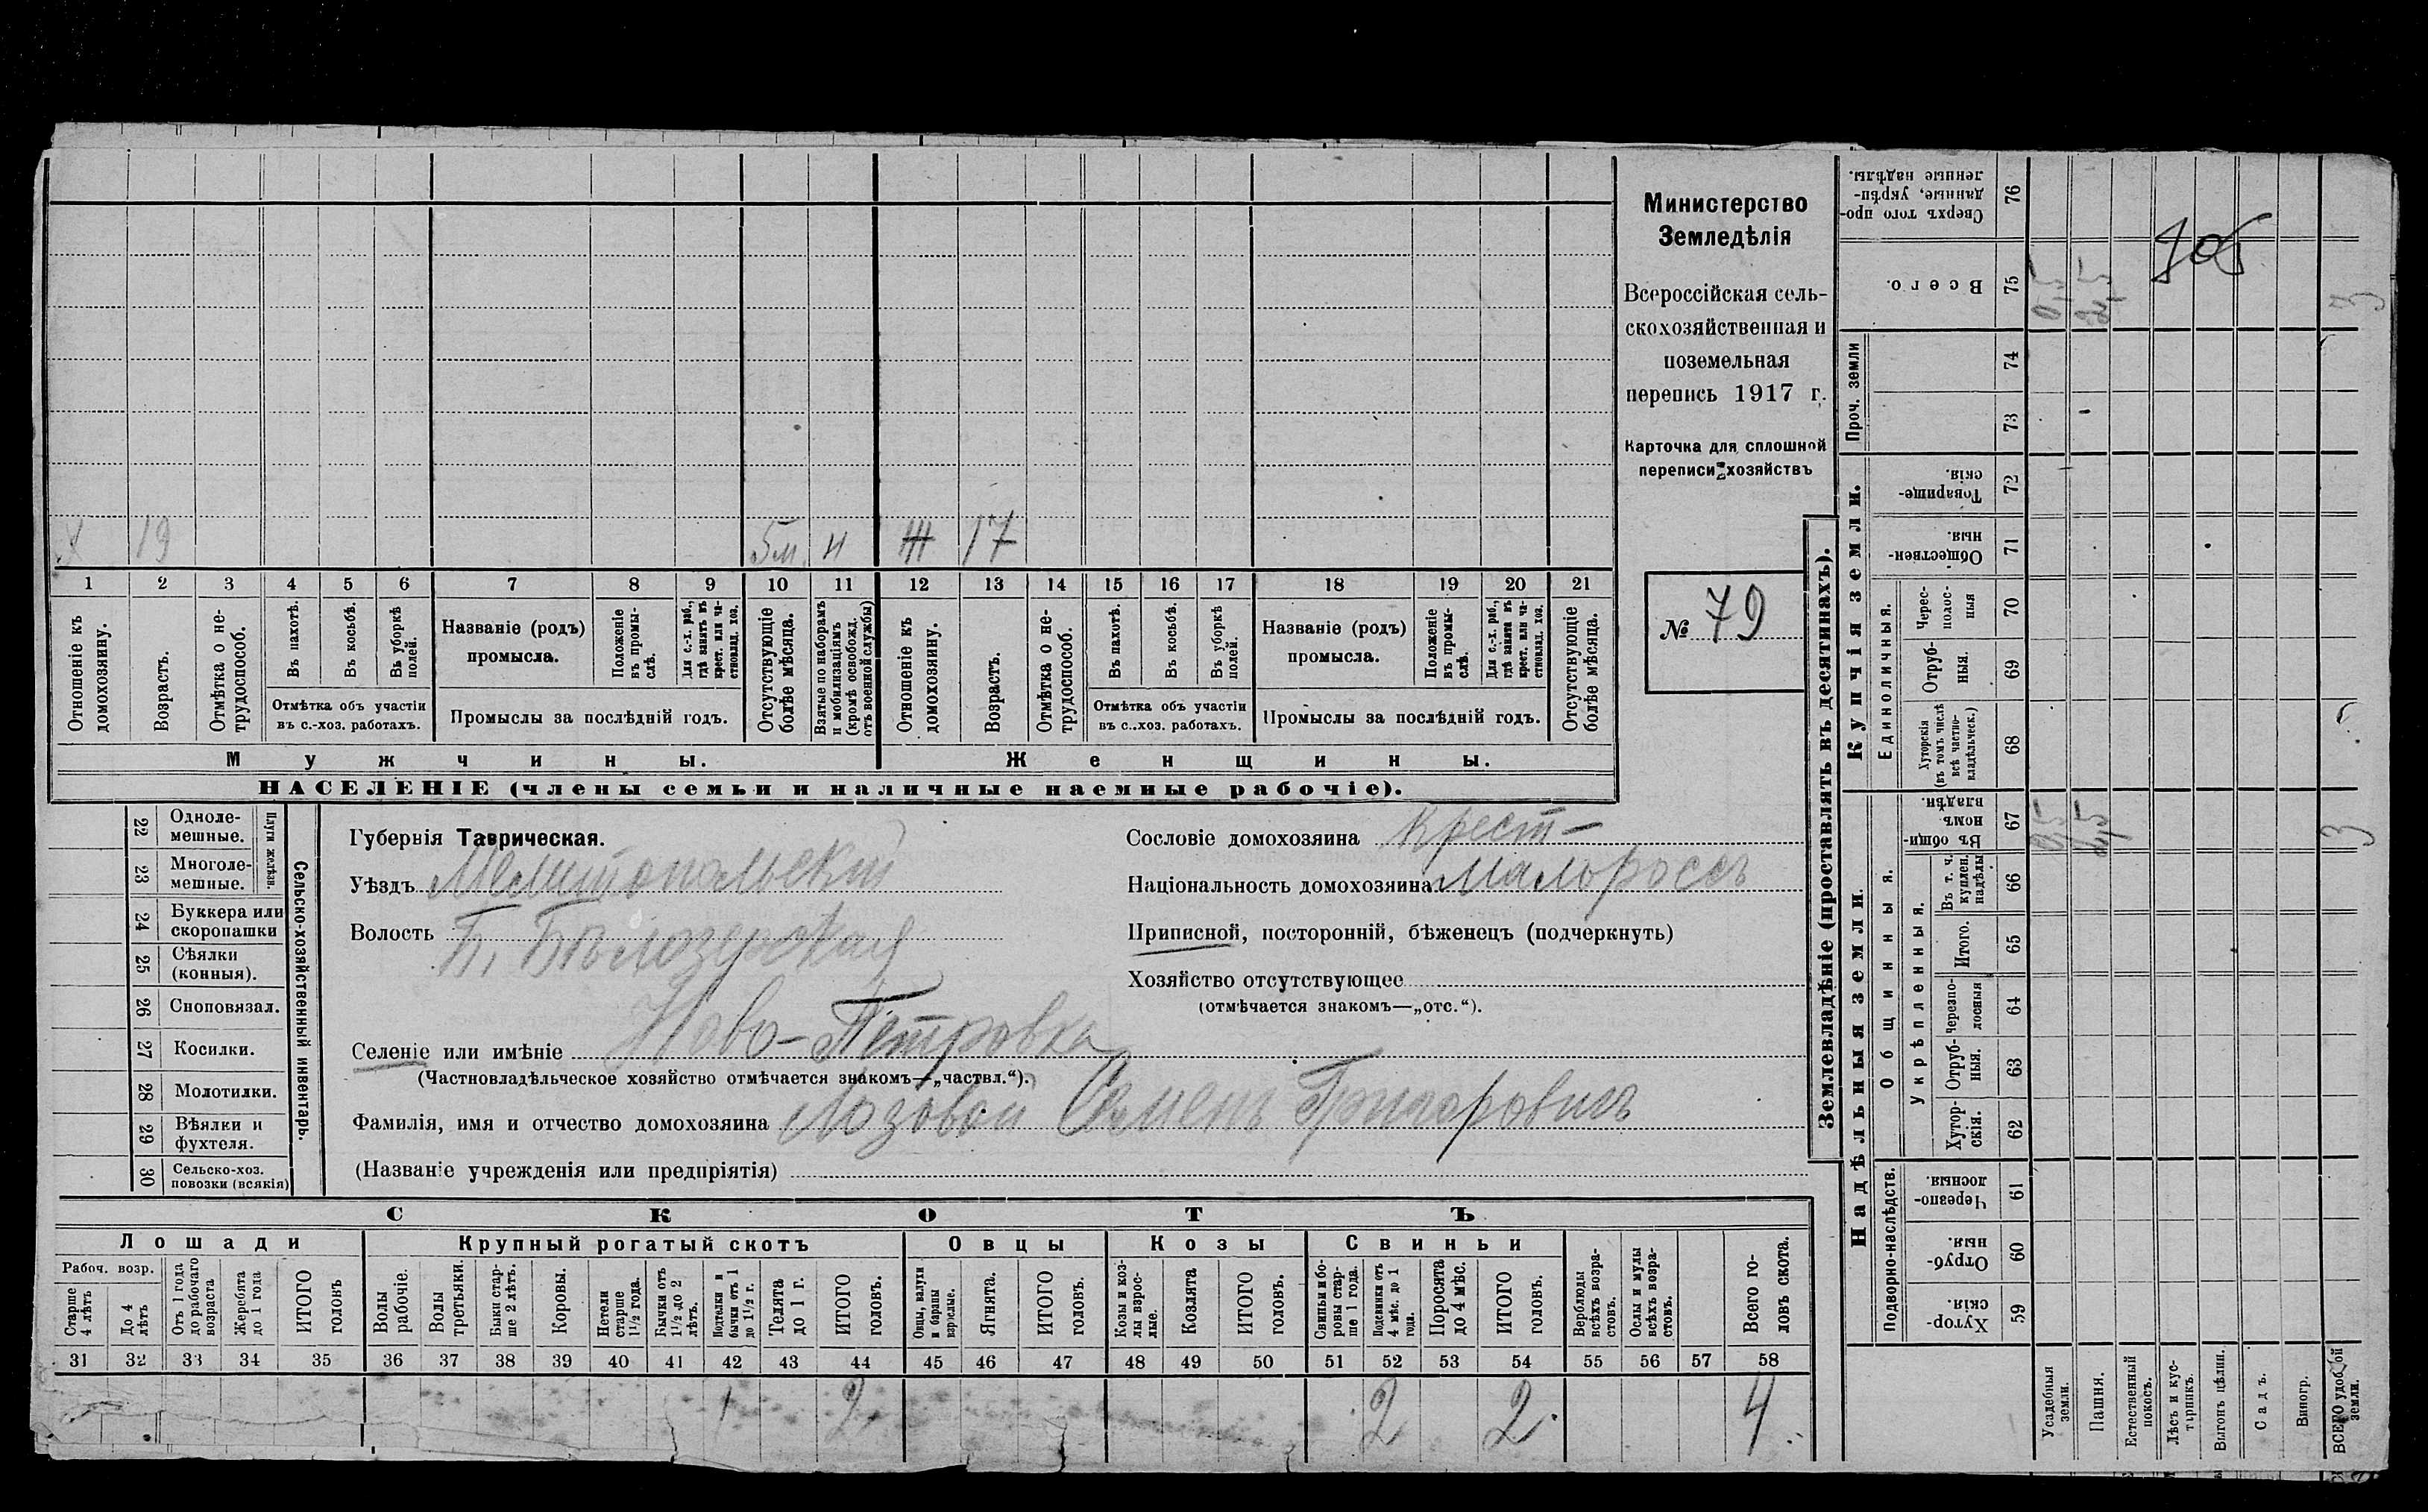 Х 19 5м. н Ж 17
1 2 3 4 5 6 7 8 9 10 11 12 13 14 15 16 17 18 19 20 21
Отношеніе къ домохозяину.
Возрастъ.
Отмѣтка о не-
трудоспособ.
Въ пахотѣ.
Въ косьбѣ.
Въ уборкѣ полей.
Отмѣтка объ участіи
въ с.-хоз. работахъ.
Названіе (родъ)
промысла.
Положеніе
въ промы-
слѣ.
Для с.-х. раб.,
гдѣ занятъ въ
крест. или ча-
стновлад. хоз.
Промыслы за послѣдній годъ.
Отсутствующіе
болѣе мѣсяца.
Взятые по наборамъ
и мобилизаціямъ
(кромѣ освобожд.
отъ военной службы)
Отношеніе къ
домохозяину.
Возрастъ.
Отмѣтка о не-
трудоспособ.
Въ пахотѣ.
Въ косьбѣ.
Въ уборкѣ
полей.
Отмѣтка объ участіи
въ с.-хоз. работахъ.
Названіе (родъ)
промысла.
Положеніе
въ промы-
слѣ.
Для с.-х. раб.,
гдѣ занята въ
крест. или ча-
стновлад. хоз.
Промыслы за послѣдній годъ.
Отсутствующіе
болѣе мѣсяца.
Мужчины.
Женщины.
НАСЕЛЕНІЕ (члены семьи и наличные наемные рабочіе).
Министерство
Земледѣлія
Всероссійская сель-
скохозяйственная и
поземельная
перепись 1917 г.
Карточка для сплошной
переписи хозяйствъ
№ 79
22 Одноле-
мешные.
23 Многоле-
мешные.
Плуги желѣзн.
24 Буккера или
скоропашки
25 Сѣялки
(конныя).
26 Сноповязал.
27 Косилки.
28 Молотилки.
29 Вѣялки и
фухтеля.
30 Сельско-хоз.
повозки (всякія)
Сельско-хозяйственный инвентарь.
Губернія Таврическая.
Уѣздъ Мелитопольскій
Волость Б. Бѣлозерская
Селеніе или имѣніе Ново-Петровка
(Частновладѣльческое хозяйство отмѣчается знакомъ—„частвл.“).
Фамилія, имя и отчество домохозяина Лозовой Семенъ Григоровичъ
(Названіе учрежденія или предпріятія)
Сословіе домохозяина Крест-
Національность домохозяина малороссъ
Приписной, посторонній, бѣженецъ (подчеркнуть)
Хозяйство отсутствующее
(отмѣчается знакомъ—„отс.“).
СКОТЪ
Лошади
Крупный рогатый скотъ
Овцы
Козы
Свиньи
Рабоч. возр.
Старше
4 лѣтъ
До 4
лѣтъ
Отъ 1 года
до рабочаго
возраста
Жеребята
до 1 года
ИТОГО
головъ
Волы
рабочіе.
Волы
третьяки.
Быки стар-
ше 2 лѣтъ.
Коровы.
Нетели
старше
1½ года.
Бычки отъ
1½ до 2
лѣтъ.
Подтелки и
бычки отъ 1
до 1½ г.
Телята
до 1 г.
ИТОГО
головъ.
Овцы, валухи
и бараны
взрослые.
Ягнята.
ИТОГО
головъ.
Козы и коз-
лы взрос-
лые.
Козлята
ИТОГО
головъ.
Свиньи и бо-
ровы стар-
ше 1 года.
Подсвинки отъ
4 мѣс. до 1
года.
Поросята
до 4 мѣс.
ИТОГО
головъ.
Верблюды
всѣхъ возра-
стовъ.
Ослы и мулы
всѣхъ возра-
стовъ.
Всего го-
ловъ скота.
31 32 33 34 35 36 37 38 39 40 41 42 43 44 45 46 47 48 49 50 51 52 53 54 55 56 57 58
1 2 2 2 4
Землевладѣніе (проставлять въ десятинахъ).
Купчія земли.
Надѣльныя земли.
Сверхъ того про-
данные, укрѣп-
ленные надѣлы.
76
Всего.
75
0,5 2,5 3
Проч. земли
74
73
Товарище-
скія.
72
Обществен-
ныя.
71
Единоличныя.
Черес-
полос-
ныя
70
Отруб-
ныя.
69
Хуторскія
(въ томъ числѣ
всѣ частно-
владѣльческ.)
68
Общинныя.
Въ общи-
номъ
владѣн.
67
0,5 2,5 3
Укрѣпленныя.
Въ т. ч.
куплен.
надѣлы
66
Итого.
65
Черезпо-
лосныя
64
Отруб-
ныя.
63
Хутор-
скія.
62
Подворно-наслѣдств.
Черезпо-
лосныя.
61
Отруб-
ныя.
60
Хутор-
скія.
59
Усадебныя
земли.
Пашня.
Естественный
покосъ.
Лѣсъ и кус-
тарникъ.
Выгонъ цѣлин.
Садъ.
Виногр.
ВСЕГО удобной
земли.